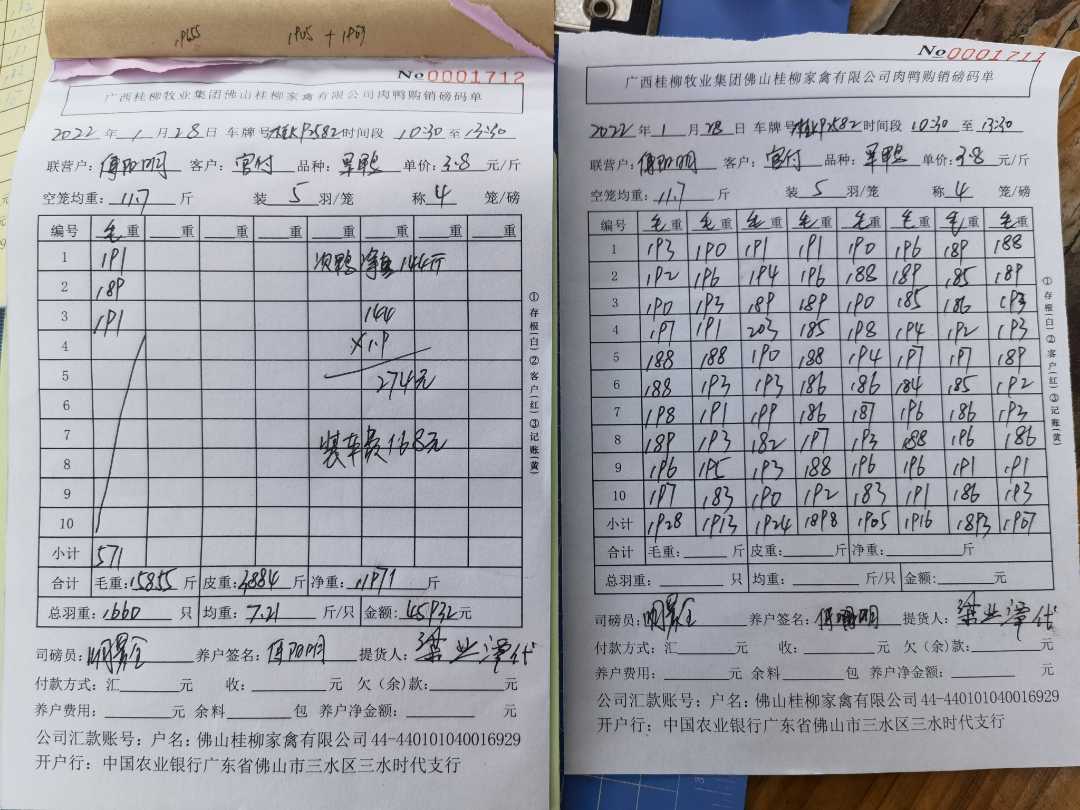 1965 1905 + 1909
No 0001712
广西桂柳牧业集团佛山桂柳家禽有限公司肉鸭购销磅码单
2022 年 1 月 28 日 车牌号 时间段 10:30 至 13:30
联营户: 傅阳明 客户: 官付 品种: 单价: 3.8 元/斤
空笼均重: 11.7 斤 装 5 羽/笼 称 4 笼/磅
编号 毛重 重 重 重 重 重 重 重
1 191 次鸭 净重 144斤
2 189
3 191 144
4 ×1.9
5 274元
6
7 装车费168元
8
9
10
小计 571
合计 毛重: 15855 斤 皮重: 3884 斤 净重: 11971 斤
总羽重: 1660 只 均重: 7.21 斤/只 金额: 45932 元
司磅员: 养户签名: 傅阳明 提货人: 梁业泽代
付款方式: 汇 元 收: 元 欠(余)款: 元
养户费用: 元 余料 包 养户净金额: 元
公司汇款账号: 户名: 佛山桂柳家禽有限公司44-440101040016929
开户行: 中国农业银行广东省佛山市三水区三水时代支行
①存根(白)②客户(红)③记账(黄)
No 0001711
广西桂柳牧业集团佛山桂柳家禽有限公司肉鸭购销磅码单
2022 年 1 月 28 日 车牌号 时间段 10:30 至 13:30
联营户: 傅阳明 客户: 官付 品种: 单价: 3.8 元/斤
空笼均重: 11.7 斤 装 5 羽/笼 称 4 笼/磅
编号 毛重 毛重 毛重 毛重 毛重 毛重 毛重 毛重
1 193 190 191 191 190 196 189 188
2 192 196 194 196 188 189 185 189
3 190 193 189 189 190 185 186 193
4 197 191 203 185 198 194 192 193
5 188 188 190 188 194 197 197 189
6 188 193 193 186 186 184 185 192
7 198 191 199 186 187 196 186 193
8 189 193 182 197 193 188 196 186
9 196 195 193 188 196 196 191 191
10 197 183 190 192 183 191 186 193
小计 1928 1913 1924 1898 1905 1916 1893 1907
合计 毛重: 斤 皮重: 斤 净重: 斤
总羽重: 只 均重: 斤/只 金额: 元
司磅员: 养户签名: 傅阳明 提货人: 梁业泽代
付款方式: 汇 元 收: 元 欠(余)款: 元
养户费用: 元 余料 包 养户净金额: 元
公司汇款账号: 户名: 佛山桂柳家禽有限公司44-440101040016929
开户行: 中国农业银行广东省佛山市三水区三水时代支行
①存根(白)②客户(红)③记账(黄)